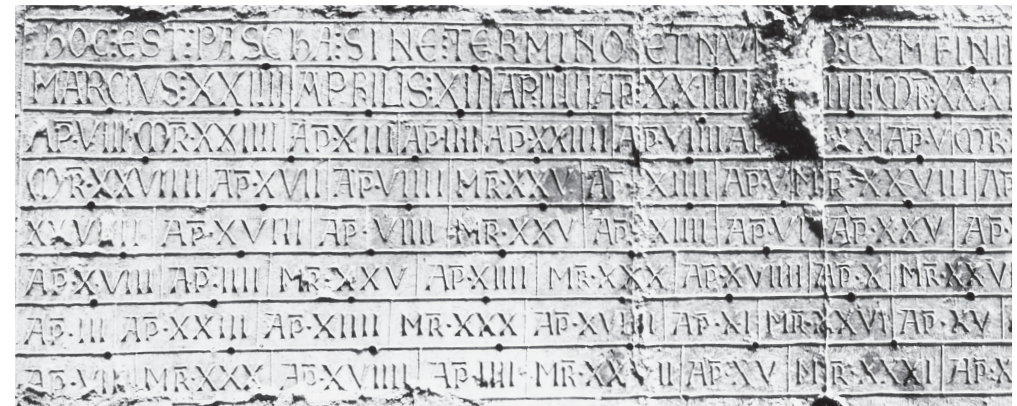 hOC:EST:PASChA:SINE:TERMINO:ET NV CVM FINI
MARCIVS:XXIIII AP̄RILIS:XII AP̄:IIII AP̄:XXIIII IIII MR̄:XXXI
AP̄·VIII MR̄·XXIIII AP̄·XIII AP̄·IIII AP̄·XXIIII AP̄·VIIII XXI AP̄·V MR̄·
MR̄·XXVIIII AP̄·XVII AP̄·VIIII MR̄·XXV AP̄·XIIII AP̄·V MR̄·XXVIII AP̄
XXVIIII AP̄·XVIII AP̄·VIIII MR̄·XXV AP̄·XIIII AP̄·VI AP̄·XXV AP̄·
AP̄·XVIII AP̄·IIII MR̄·XXV AP̄·XIIII MR̄·XXX AP̄·XVIIII AP̄·X MR̄·XXVI
AP̄·III AP̄·XXIII AP̄·XIIII MR̄·XXX AP̄·XVIIII AP̄·XI MR̄·XXVI AP̄·XV
AP̄·VII MR̄·XXX AP̄·XVIIII AP̄·IIII MR̄·XX II AP̄·XV MR̄·XXXI AP̄·X